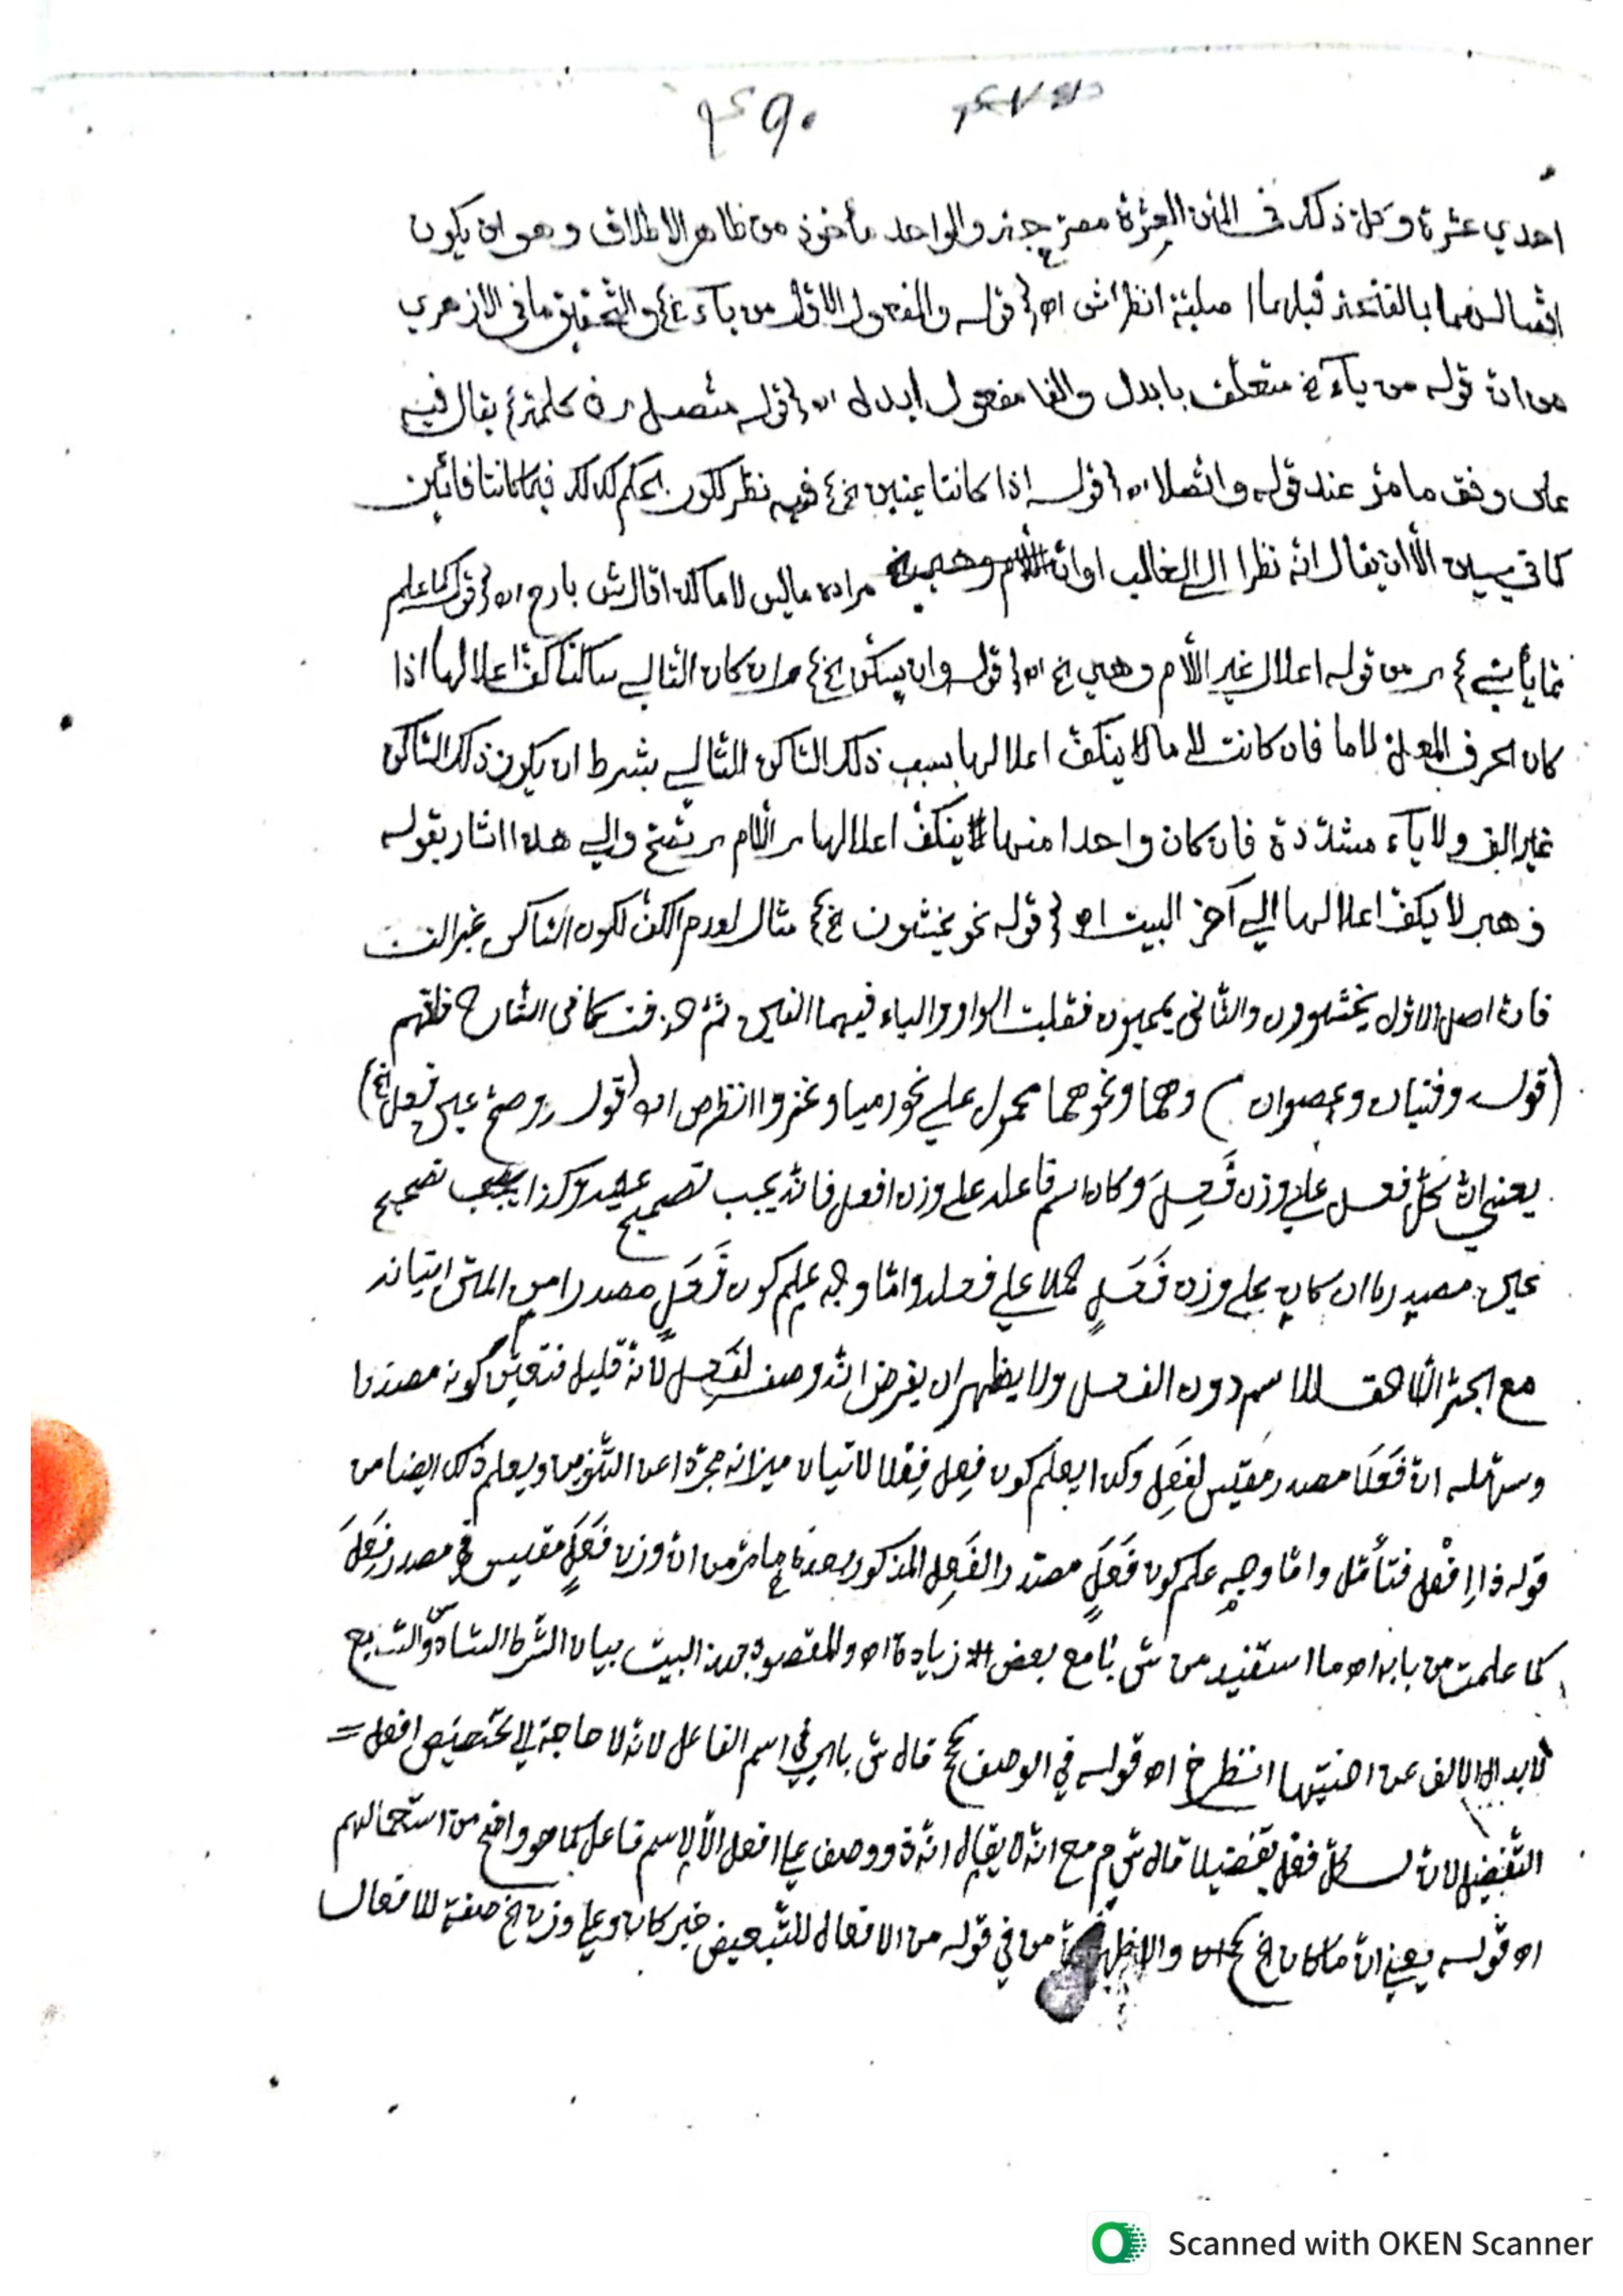 ٤٩٠
احدي عشرة وكل ذلك في المتن العشرة مصرح جنه والواحد مأخوذ من ظاهر الاطلاق وهو ان يكون
اتصالهما بالفتحة قبلهما اصلية انظر ش اه (قوله والمفعول الاول من ياء الخ) والتحقيق ما في الازهري
من ان قوله من ياء الخ متعلق بابدل والفا مفعول ابدل اه (قوله متصل في كلمة) يقال فيه
على وفق ما مر عند قوله واتصلا اه (قوله اذا كانتا عينين الخ) فيه نظر لكون الحكم كذلك فيما كانتا فائين
كما في الا ان يقال انه نظرا الي الغالب او ان مراده ماليس لاما كذا قال ش بارح اه (قوله كما علم
مما يأتي) من قوله اعلال غير اللام وهي الخ اه (قوله وان يسكن الخ) وان كان التالي ساكنا كف اعلالها اذا
كان الحرف المعل لاما فان كانت لاما لا ينكف اعلالها بسبب ذلك الساكن التالي بشرط ان يكون ذلك الساكن
غير الف ولا ياء مشددة فان كان واحدا منها ينكف اعلالها اللام والي هذا اشار بقوله
وهي لا يكف اعلالها الي آخر البيت اه (قوله نحو يخشون الخ) مثال لعدم الكف لكون الساكن غير الف
فان اصل الاول يخشيون والثاني يمحيون فقلبت الواو والياء فيهما الفين ثم حذفت كما في الشارح فافهم
(قوله وفتيان وعصوان) وهما ونحوهما محمول علي نحو رميا وغزوا انظر ص اه (قوله وصح عين فعل الخ)
يعني ان كل فعل علي وزن فَعِلَ وكان اسم فاعله علي وزن افعل فانه يجب تصحيح عينه وكذا يجب تصحيح
عين مصدره ان كان علي وزن فَعَلٍ حملا علي فعله واما وجه علم كون فَعَلٍ مصدرا من المتن اتيانه
مع الجر اللاحق للاسم دون الفعل ولا يظهر ان يفرض انه وصف لفعل لانه قليل فتعين كونه مصدرا
وسهله ان فَعَلًا مصدر مقيس لفَعِلَ وكذا يعلم كون فعل فعلا لاتيان ميزانه مجردا عن التنوين ويعلم ذلك ايضا من
قوله ذا افعل فتأمل واما وجه علم كون فَعَلٍ مصدر الفَعِل المذكور بعده ما مر من ان وزن فَعَلٍ مقيس في مصدر فَعِلَ
كما علمت من بابه اه ما استفيد من ش نا مع بعض زيادة اه والمقصود بهذا البيت بيان الشرط السادس والسابع
لابدال الالف عن اختيها انظر خ اه قوله في الوصف الخ قال ش باي في اسم الفاعل لانه لا حاجة الي تخصيص افعل =
التفضيل لان لكل فعل تفضيلا قال ش م مع انه لا يقال انه ذو وصف علي افعل الا لاسم فاعل كما هو واضح من استعمالهم
اه قوله يعني ان ما كان الخ من في قوله من الافعال للتبعيض خبر كان وعلي وزن الخ صفة للافعال
Scanned with OKEN Scanner